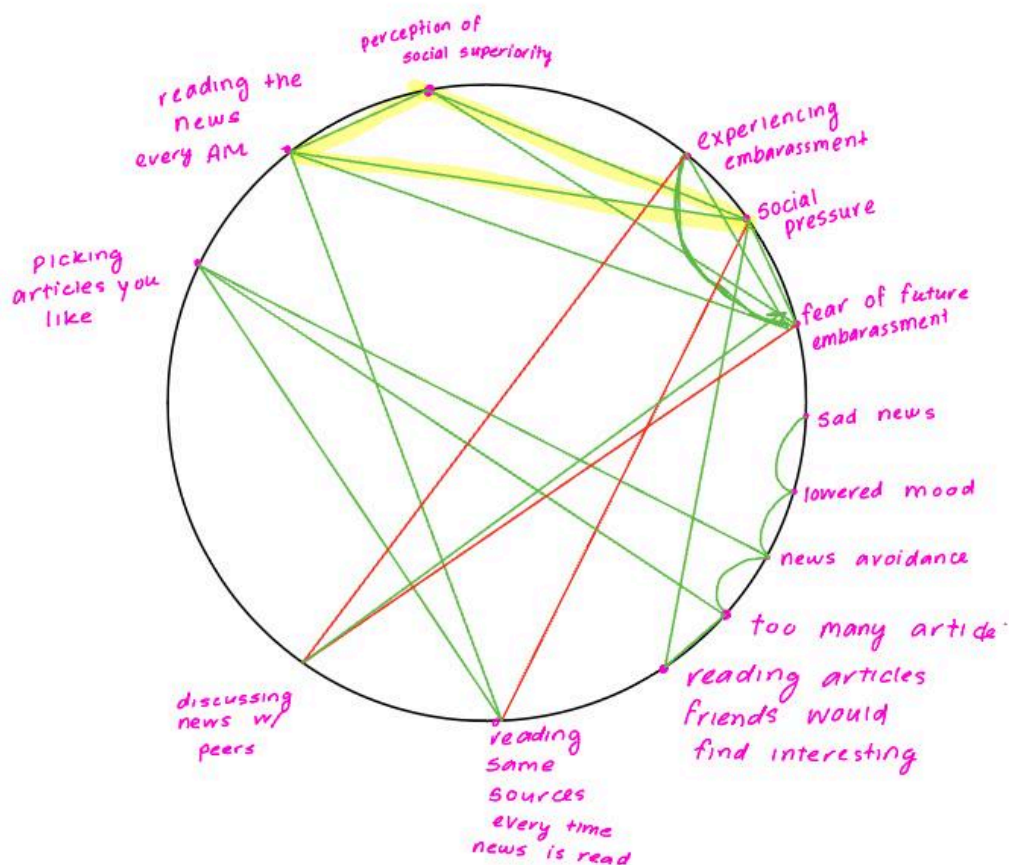 perception of
social superiority
reading the
news
every AM
experiencing
embarassment
social
pressure
picking
articles you
like
fear of future
embarassment
sad news
lowered mood
news avoidance
too many article
reading articles
friends would
find interesting
discussing
news w/
peers
reading
same
sources
every time
news is read